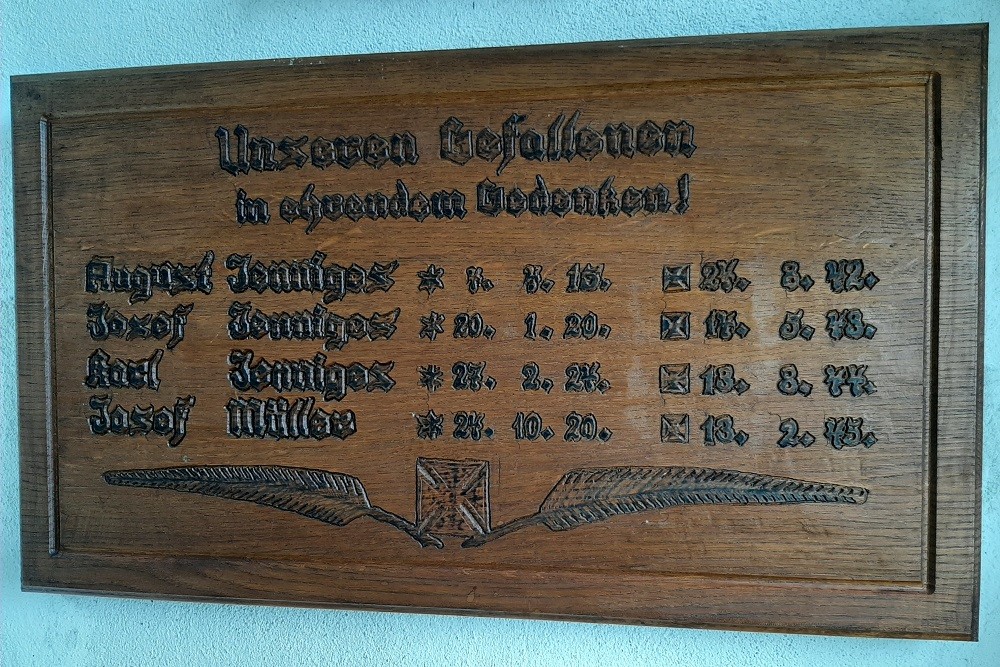 Unseren Gefallenen
in ehrendem Gedenken!
August Jenniges * 4. 4. 15. 24. 8. 42.
Josef Jenniges * 20. 1. 20. 14. 5. 43.
Karl Jenniges * 24. 2. 24. 13. 8. 44.
Josef Müller * 24. 10. 20. 13. 2. 45.